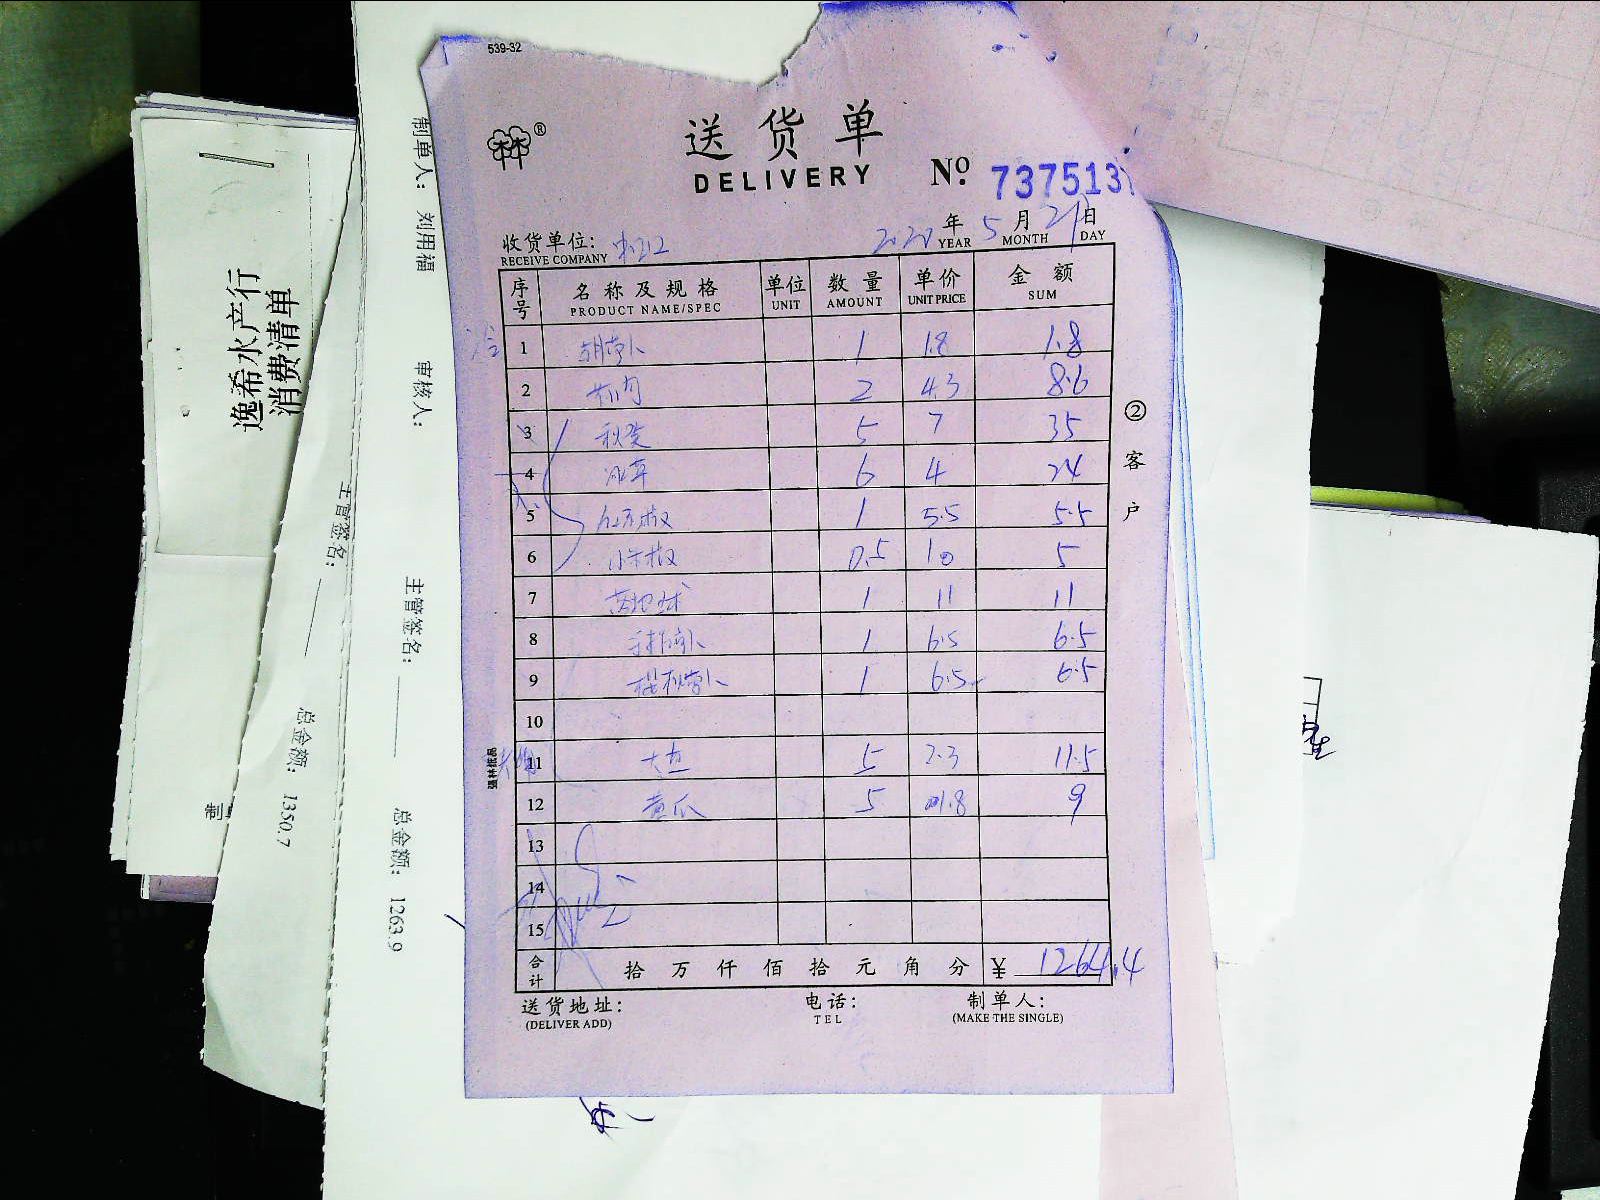 539-32
送货单
DELIVERY
№ 7375137
2020 年 5 月 21 日
YEAR MONTH DAY
收货单位:
RECEIVE COMPANY
序号 名称及规格 单位 数量 单价 金额
PRODUCT NAME/SPEC UNIT AMOUNT UNIT PRICE SUM
1 胡萝卜 1 1.8 1.8
2 2 4.3 8.6
3 秋葵 5 7 35
4 冰草 6 4 24
5 1 5.5 5.5
6 小米椒 0.5 10 5
7 1 11 11
8 1 6.5 6.5
9 樱桃萝卜 1 6.5 6.5
10
11 5 2.3 11.5
12 黄瓜 5 1.8 9
13
14
15
合计 拾 万 仟 佰 拾 元 角 分 ¥ 1264.4
送货地址: 电话: 制单人:
(DELIVER ADD) TEL (MAKE THE SINGLE)
② 客户
强林纸品
逸希水产行
消费清单
制单人: 刘用福 审核人:
主管签名: 总金额: 1263.9
主管签名: 总金额: 1350.7
制